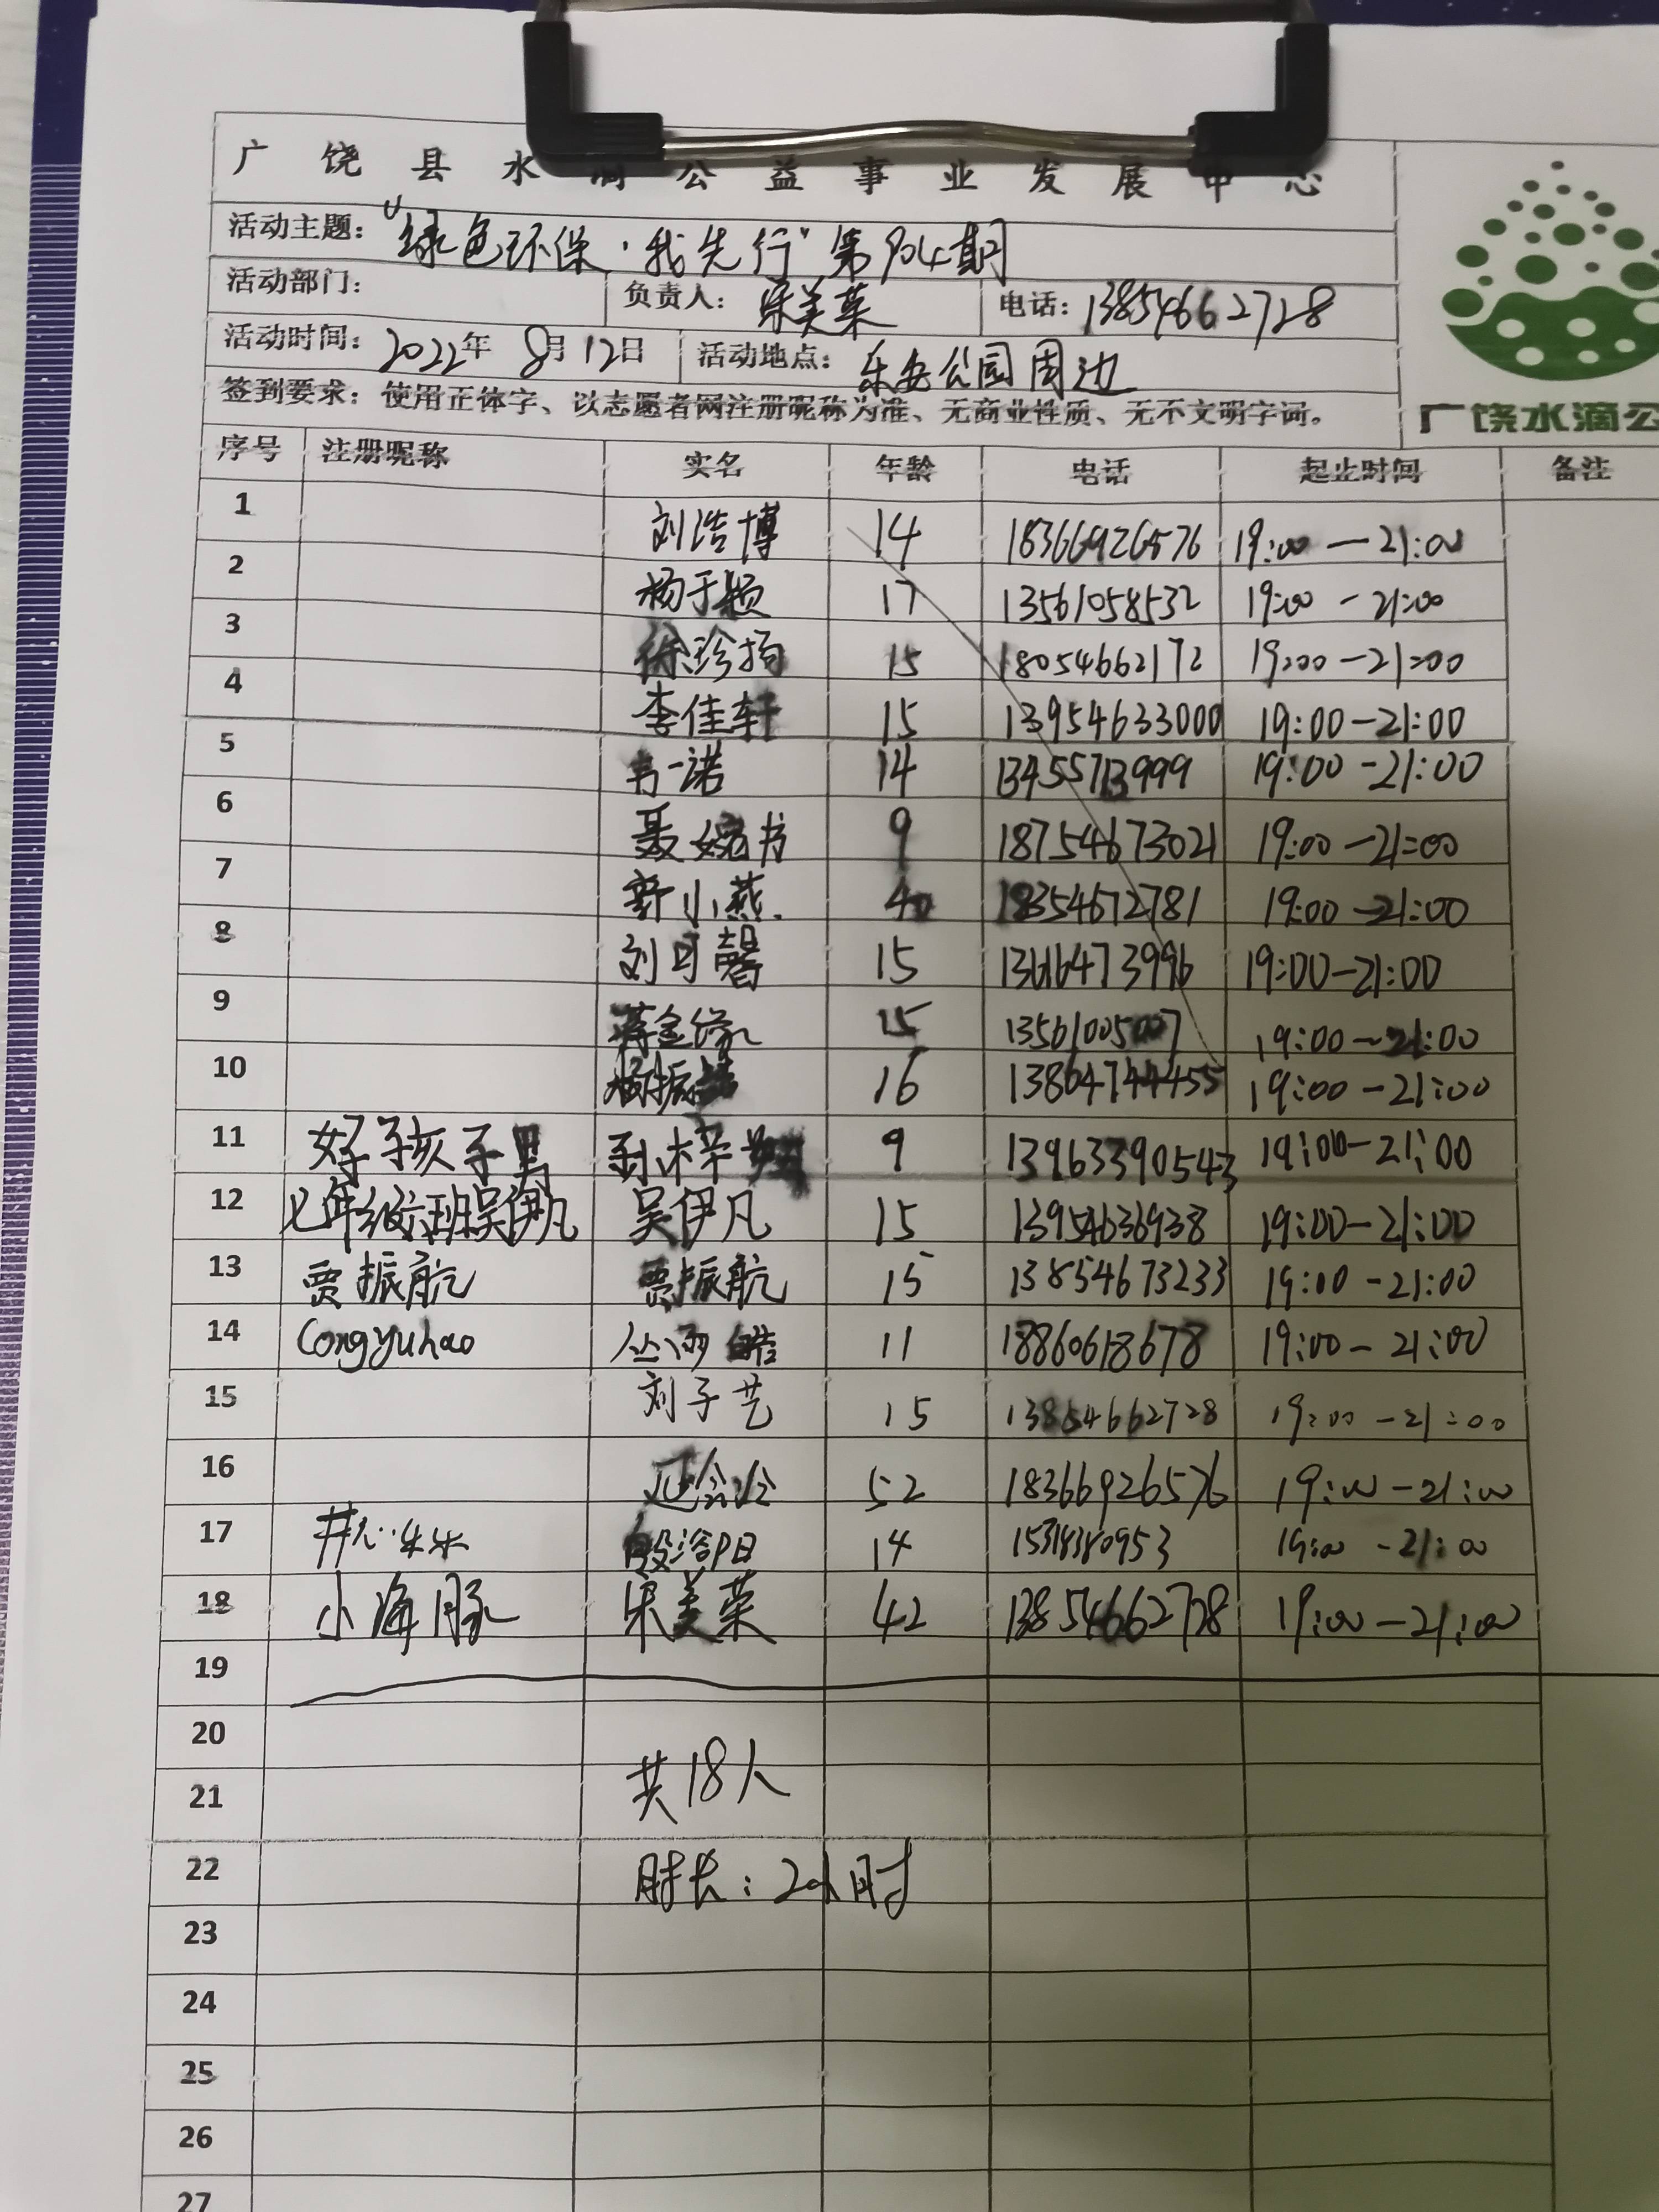 广饶县水滴公益事业发展中心
活动主题：“绿色环保·我先行”第904期
活动部门： 负责人：宋美荣 电话：13854662728
活动时间：2022年8月12日 活动地点：乐安公园周边
签到要求：使用正体字、以志愿者网注册昵称为准、无商业性质、无不文明字词。
广饶水滴公
序号 注册昵称 实名 年龄 电话 起止时间 备注
1 刘浩博 14 18366926576 19:00—21:00
2 杨于颖 17 13561058532 19:00-21:00
3 徐珍扬 15 18054662172 19:00-21:00
4 李佳轩 15 13954633000 19:00-21:00
5 一诺 14 13455713999 19:00-21:00
6 聂婉书 9 18754673021 19:00-21:00
7 靳小燕 40 18354672781 19:00-21:00
8 刘可馨 15 13616473996 19:00-21:00
9 蒋金缘 15 19:00-21:00
10 杨振 16 13864744455 19:00-21:00
11 好孩子男 孙梓 9 13963390543 19:00-21:00
12 七年级六班吴伊凡 吴伊凡 15 13954636938 19:00-21:00
13 贾振航 贾振航 15 13854673233 19:00-21:00
14 Congyuhao 丛雨皓 11 18860618678 19:00-21:00
15 刘子艺 15 13854662728 19:00-21:00
16 52 18366926576 19:00-21:00
17 14 15318380953 19:00-21:00
18 小海豚 宋美荣 42 13854662728 19:00-21:00
19
20
共18人
21
22
时长：2小时
23
24
25
26
27